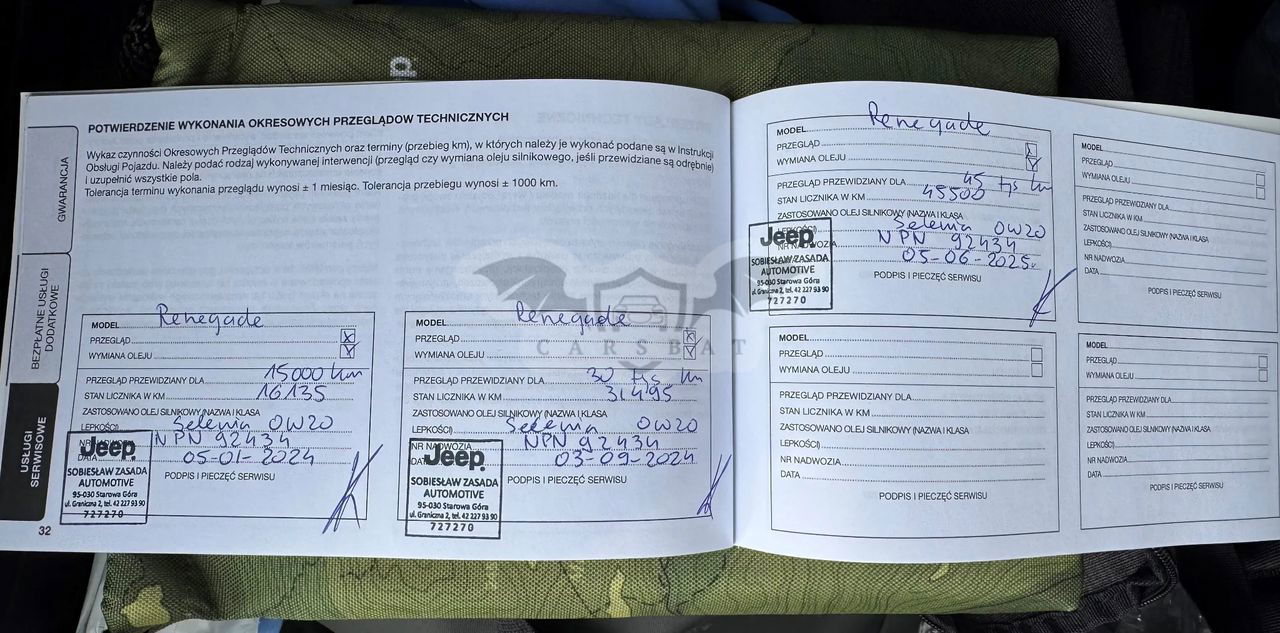 Jeep
32
GWARANCJA
BEZPŁATNE USŁUGI
DODATKOWE
USŁUGI
SERWISOWE
POTWIERDZENIE WYKONANIA OKRESOWYCH PRZEGLĄDOW TECHNICZNYCH
Wykaz czynności Okresowych Przeglądów Technicznych oraz terminy (przebieg km), w których należy je wykonać podane są w Instrukcji
Obsługi Pojazdu. Należy podać rodzaj wykonywanej interwencji (przegląd czy wymiana oleju silnikowego, jeśli przewidziane są odrębnie)
i uzupełnić wszystkie pola.
Tolerancja terminu wykonania przeglądu wynosi ± 1 miesiąc. Tolerancja przebiegu wynosi ± 1000 km.
MODEL Renegade
PRZEGLĄD X
WYMIANA OLEJU
PRZEGLĄD PRZEWIDZIANY DLA 15000 km
STAN LICZNIKA W KM 16135
ZASTOSOWANO OLEJ SILNIKOWY (NAZWA I KLASA
LEPKOŚCI) Selenia 0W20
NPN 92434
DATA 05-01-2024
PODPIS I PIECZĘĆ SERWISU
Jeep
SOBIESŁAW ZASADA
AUTOMOTIVE
95-030 Starowa Góra
ul. Graniczna 2, tel. 42 227 93 90
727270
MODEL Renegade
PRZEGLĄD X
WYMIANA OLEJU
PRZEGLĄD PRZEWIDZIANY DLA 30 tys km
STAN LICZNIKA W KM 31495
ZASTOSOWANO OLEJ SILNIKOWY (NAZWA I KLASA
LEPKOŚCI) Selenia 0W20
NR NADWOZIA NPN 92434
DATA 03-09-2024
PODPIS I PIECZĘĆ SERWISU
Jeep
SOBIESŁAW ZASADA
AUTOMOTIVE
95-030 Starowa Góra
ul. Graniczna 2, tel. 42 227 93 90
727270
CARSBAT
MODEL Renegade
PRZEGLĄD
WYMIANA OLEJU
PRZEGLĄD PRZEWIDZIANY DLA 45 tys km
STAN LICZNIKA W KM 45500
ZASTOSOWANO OLEJ SILNIKOWY (NAZWA I KLASA
LEPKOŚCI) Selenia 0W20
NR NADWOZIA NPN 92434
05-06-2025r
PODPIS I PIECZĘĆ SERWISU
Jeep
SOBIESŁAW ZASADA
AUTOMOTIVE
95-030 Starowa Góra
ul. Graniczna 2, tel. 42 227 93 90
727270
MODEL
PRZEGLĄD
WYMIANA OLEJU
PRZEGLĄD PRZEWIDZIANY DLA
STAN LICZNIKA W KM
ZASTOSOWANO OLEJ SILNIKOWY (NAZWA I KLASA
LEPKOŚCI)
NR NADWOZIA
DATA
PODPIS I PIECZĘĆ SERWISU
MODEL
PRZEGLĄD
WYMIANA OLEJU
PRZEGLĄD PRZEWIDZIANY DLA
STAN LICZNIKA W KM
ZASTOSOWANO OLEJ SILNIKOWY (NAZWA I KLASA
LEPKOŚCI)
NR NADWOZIA
DATA
PODPIS I PIECZĘĆ SERWISU
MODEL
PRZEGLĄD
WYMIANA OLEJU
PRZEGLĄD PRZEWIDZIANY DLA
STAN LICZNIKA W KM
ZASTOSOWANO OLEJ SILNIKOWY (NAZWA I KLASA
LEPKOŚCI)
NR NADWOZIA
DATA
PODPIS I PIECZĘĆ SERWISU